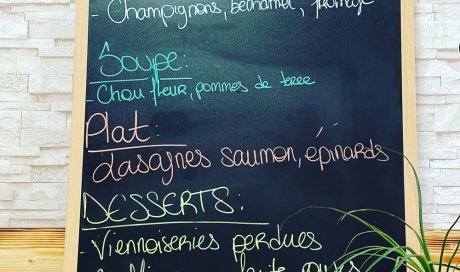 - Champignons, béchamel, fromage
Soupe:
- Chou fleur, pommes de terre
Plat:
Lasagnes saumon, épinards
DESSERTS:
- Viennoiseries perdues